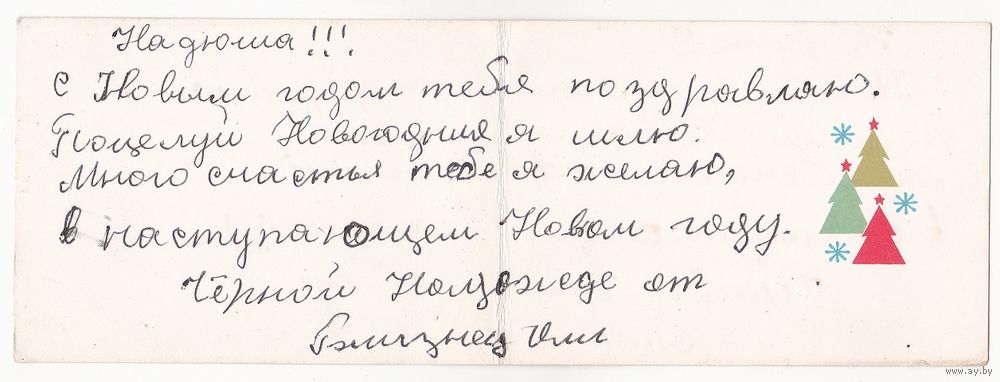 Надюша!!!
С Новым годом тебя поздравляю.
Поцелуй Новогодний я шлю.
Много счастья тебе я желаю,
в наступающем Новом году.
Чёрной Надежде от
Близнец Оли
www.ay.by